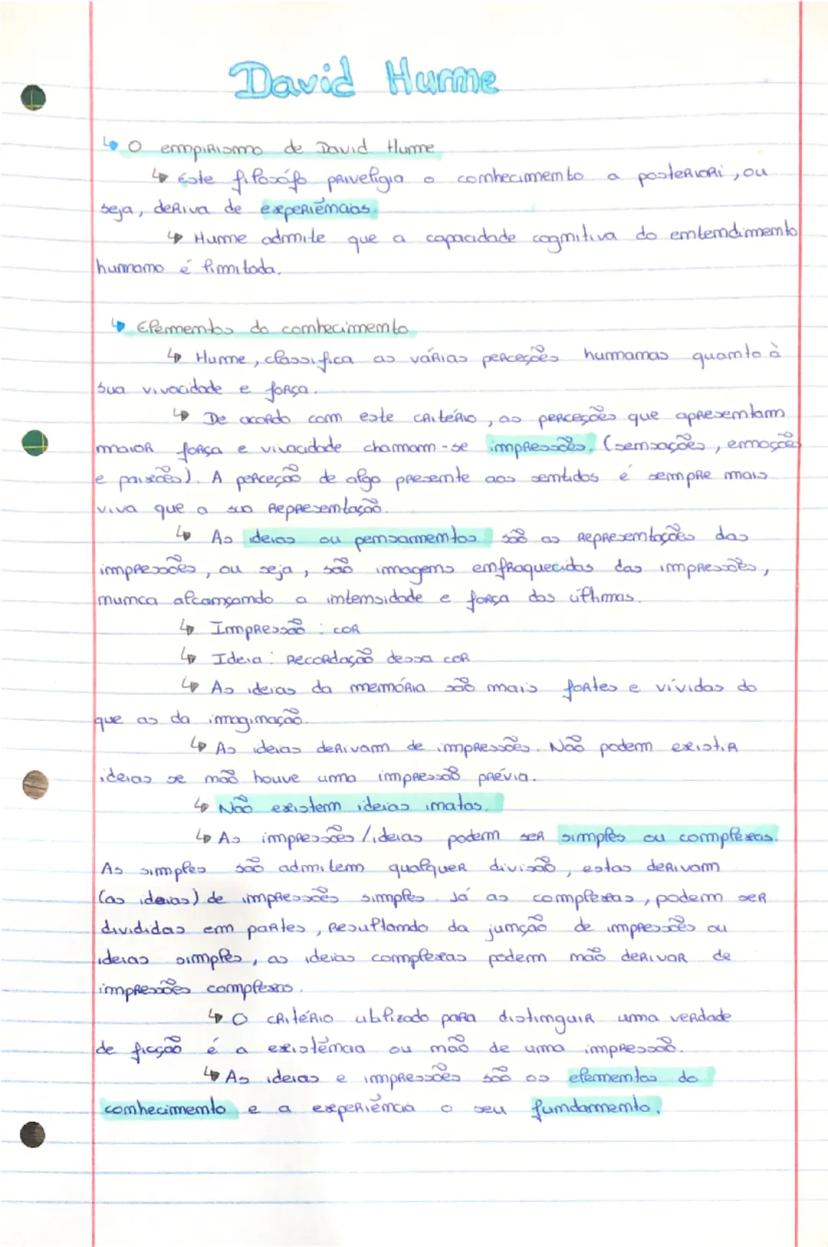 David Hume
↳ O empirismo de David Hume
↳ Este filosófo priveligia o conhecimento a posteriori, ou
seja, deriva de experiências.
↳ Hume admite que a capacidade cognitiva do entendimento
humano é limitada.
↳ Elementos do conhecimento
↳ Hume, classifica as várias perceções humanas quanto à
sua vivacidade e força.
↳ De acordo com este critério, as perceções que apresentam
maior força e vivacidade chamam-se impressões. (sensações, emoções
e paixões). A perceção de algo presente aos sentidos é sempre mais
viva que a sua representação.
↳ As ideias ou pensamentos são as representações das
impressões, ou seja, são imagens enfraquecidas das impressões,
nunca alcançando a intensidade e força das últimas.
↳ Impressão: cor
↳ Ideia: recordação dessa cor
↳ As ideias da memória são mais fortes e vívidas do
que as da imaginação.
↳ As ideias derivam de impressões. Não podem existir
ideias se não houve uma impressão prévia.
↳ Não existem ideias inatas.
↳ As impressões/ideias podem ser simples ou complexas.
As simples são admitem qualquer divisão, estas derivam
(as ideias) de impressões simples. Já as complexas, podem ser
divididas em partes, resultando da junção de impressões ou
ideias simples, as ideias complexas podem não derivar de
impressões complexas.
↳ O critério utilizado para distinguir uma verdade
de ficção é a existência ou não de uma impressão.
↳ As ideias e impressões são os elementos do
conhecimento e a experiência o seu fundamento.